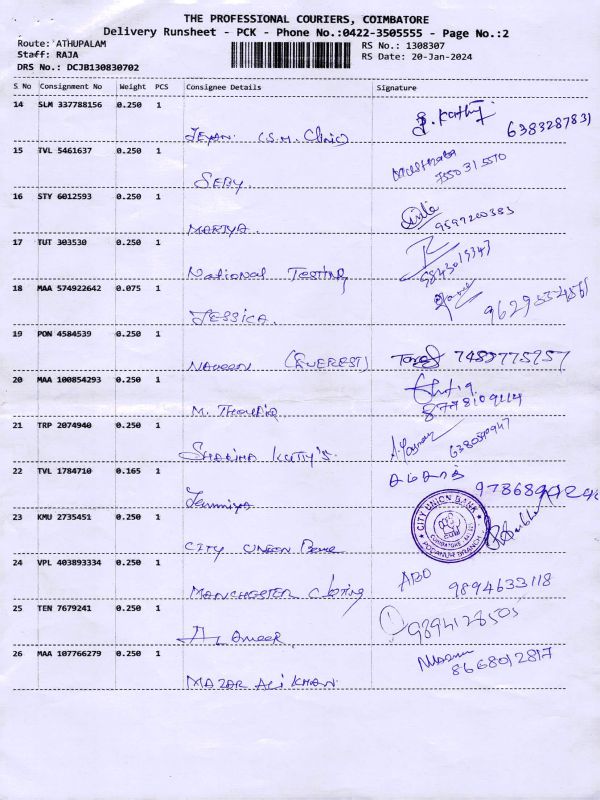 THE PROFESSIONAL COURIERS, COIMBATORE
Delivery Runsheet - PCK - Phone No.:0422-3505555 - Page No.:2
Route: ATHUPALAM
RS No.: 1308307
Staff: RAJA
RS Date: 20-Jan-2024
DRS No.: DCJB130830702
S No Consignment No Weight PCS Consignee Details Signature
14 SLM 337788156 0.250 1
638328783)
JEYAN. (S.M. Clinic)
15 TVL 5461637 0.250 1
755031 5570
SEBY.
16 STY 6012593 0.250 1
9597200383
MARIYA.
17 TUT 303530 0.250 1
9843019343
National Testing
18 MAA 574922642 0.075 1
JESSICA.
19 PON 4584539 0.250 1
Naveen (EVEREST)
20 MAA 100854293 0.250 1
8778109114
M. Thoufiq
21 TRP 2074940 0.250 1
22 TVL 1784710 0.165 1
23 KMU 2735451 0.250 1
CITY UNION BANK
PODANUR BRANCH
CITY UNION Bank
24 VPL 403893334 0.250 1
ABO 9894633118
MANCHESTER Cloting
25 TEN 7679241 0.250 1
9894128505
AL Ameer
26 MAA 107766279 0.250 1
8668012817
MAZAR ALI KHAN.